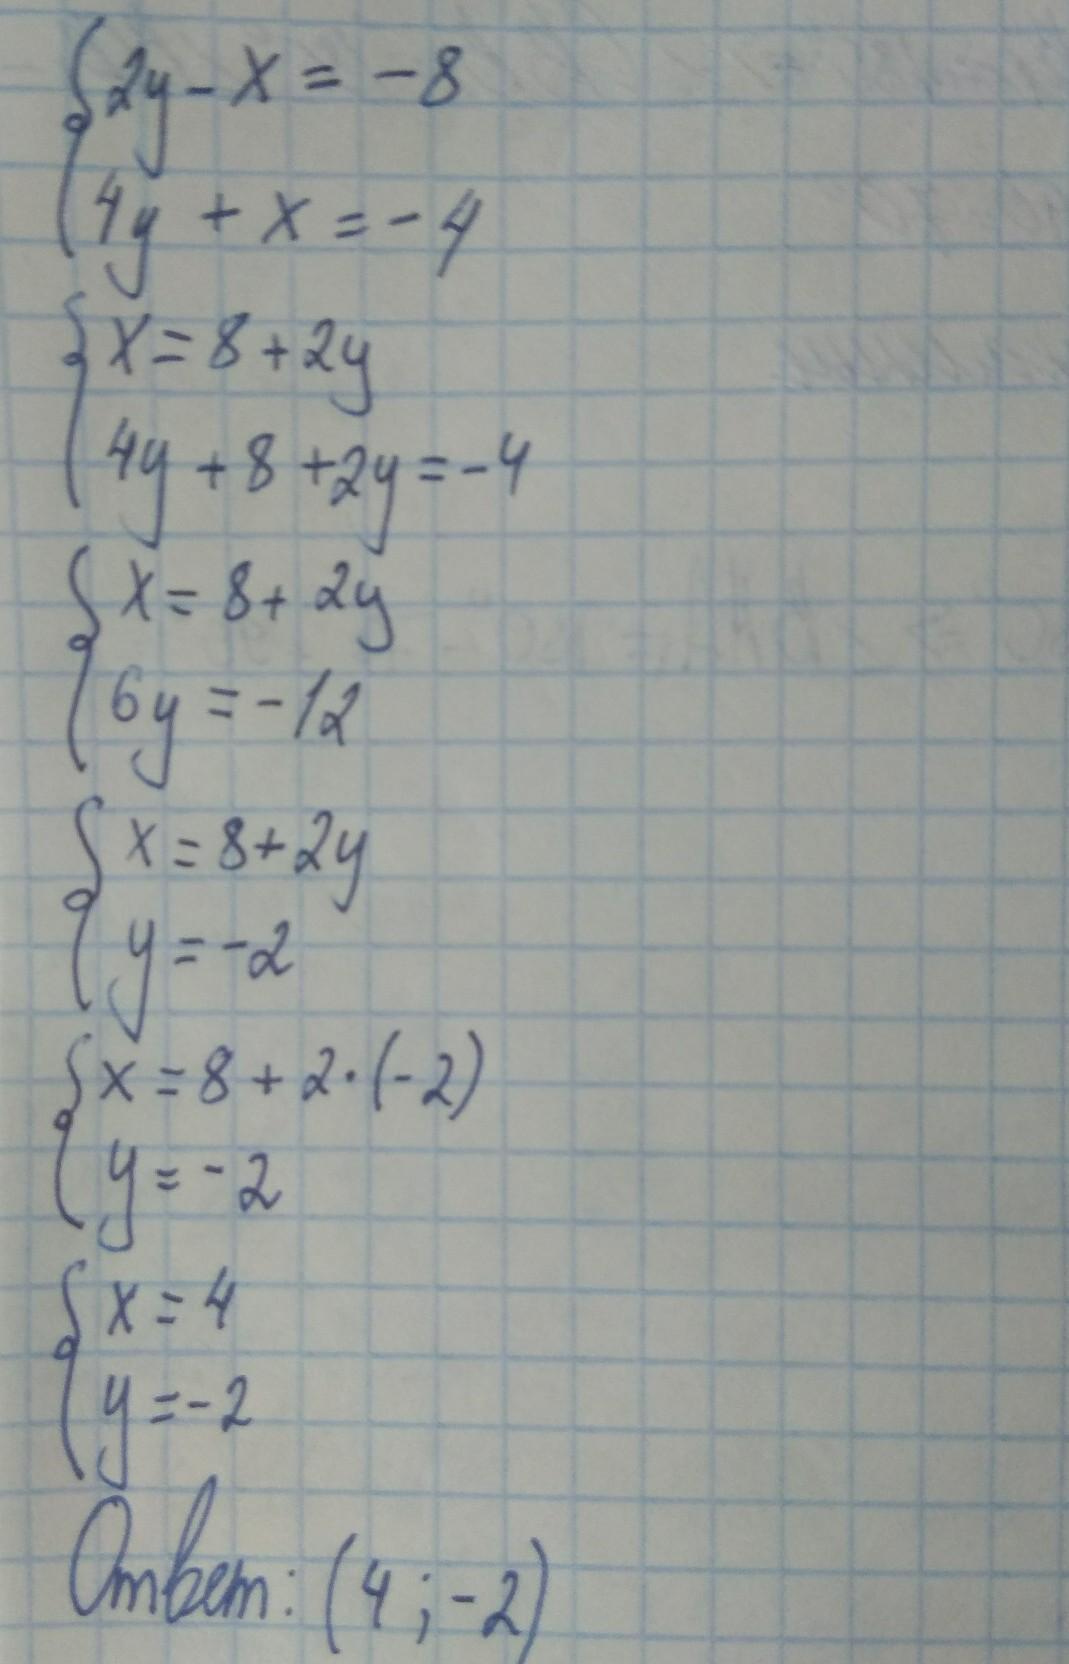 2y - x = -8
4y + x = -4
x = 8 + 2y
4y + 8 + 2y = -4
x = 8 + 2y
6y = -12
x = 8 + 2y
y = -2
x = 8 + 2·(-2)
y = -2
x = 4
y = -2
Ответ: (4; -2)